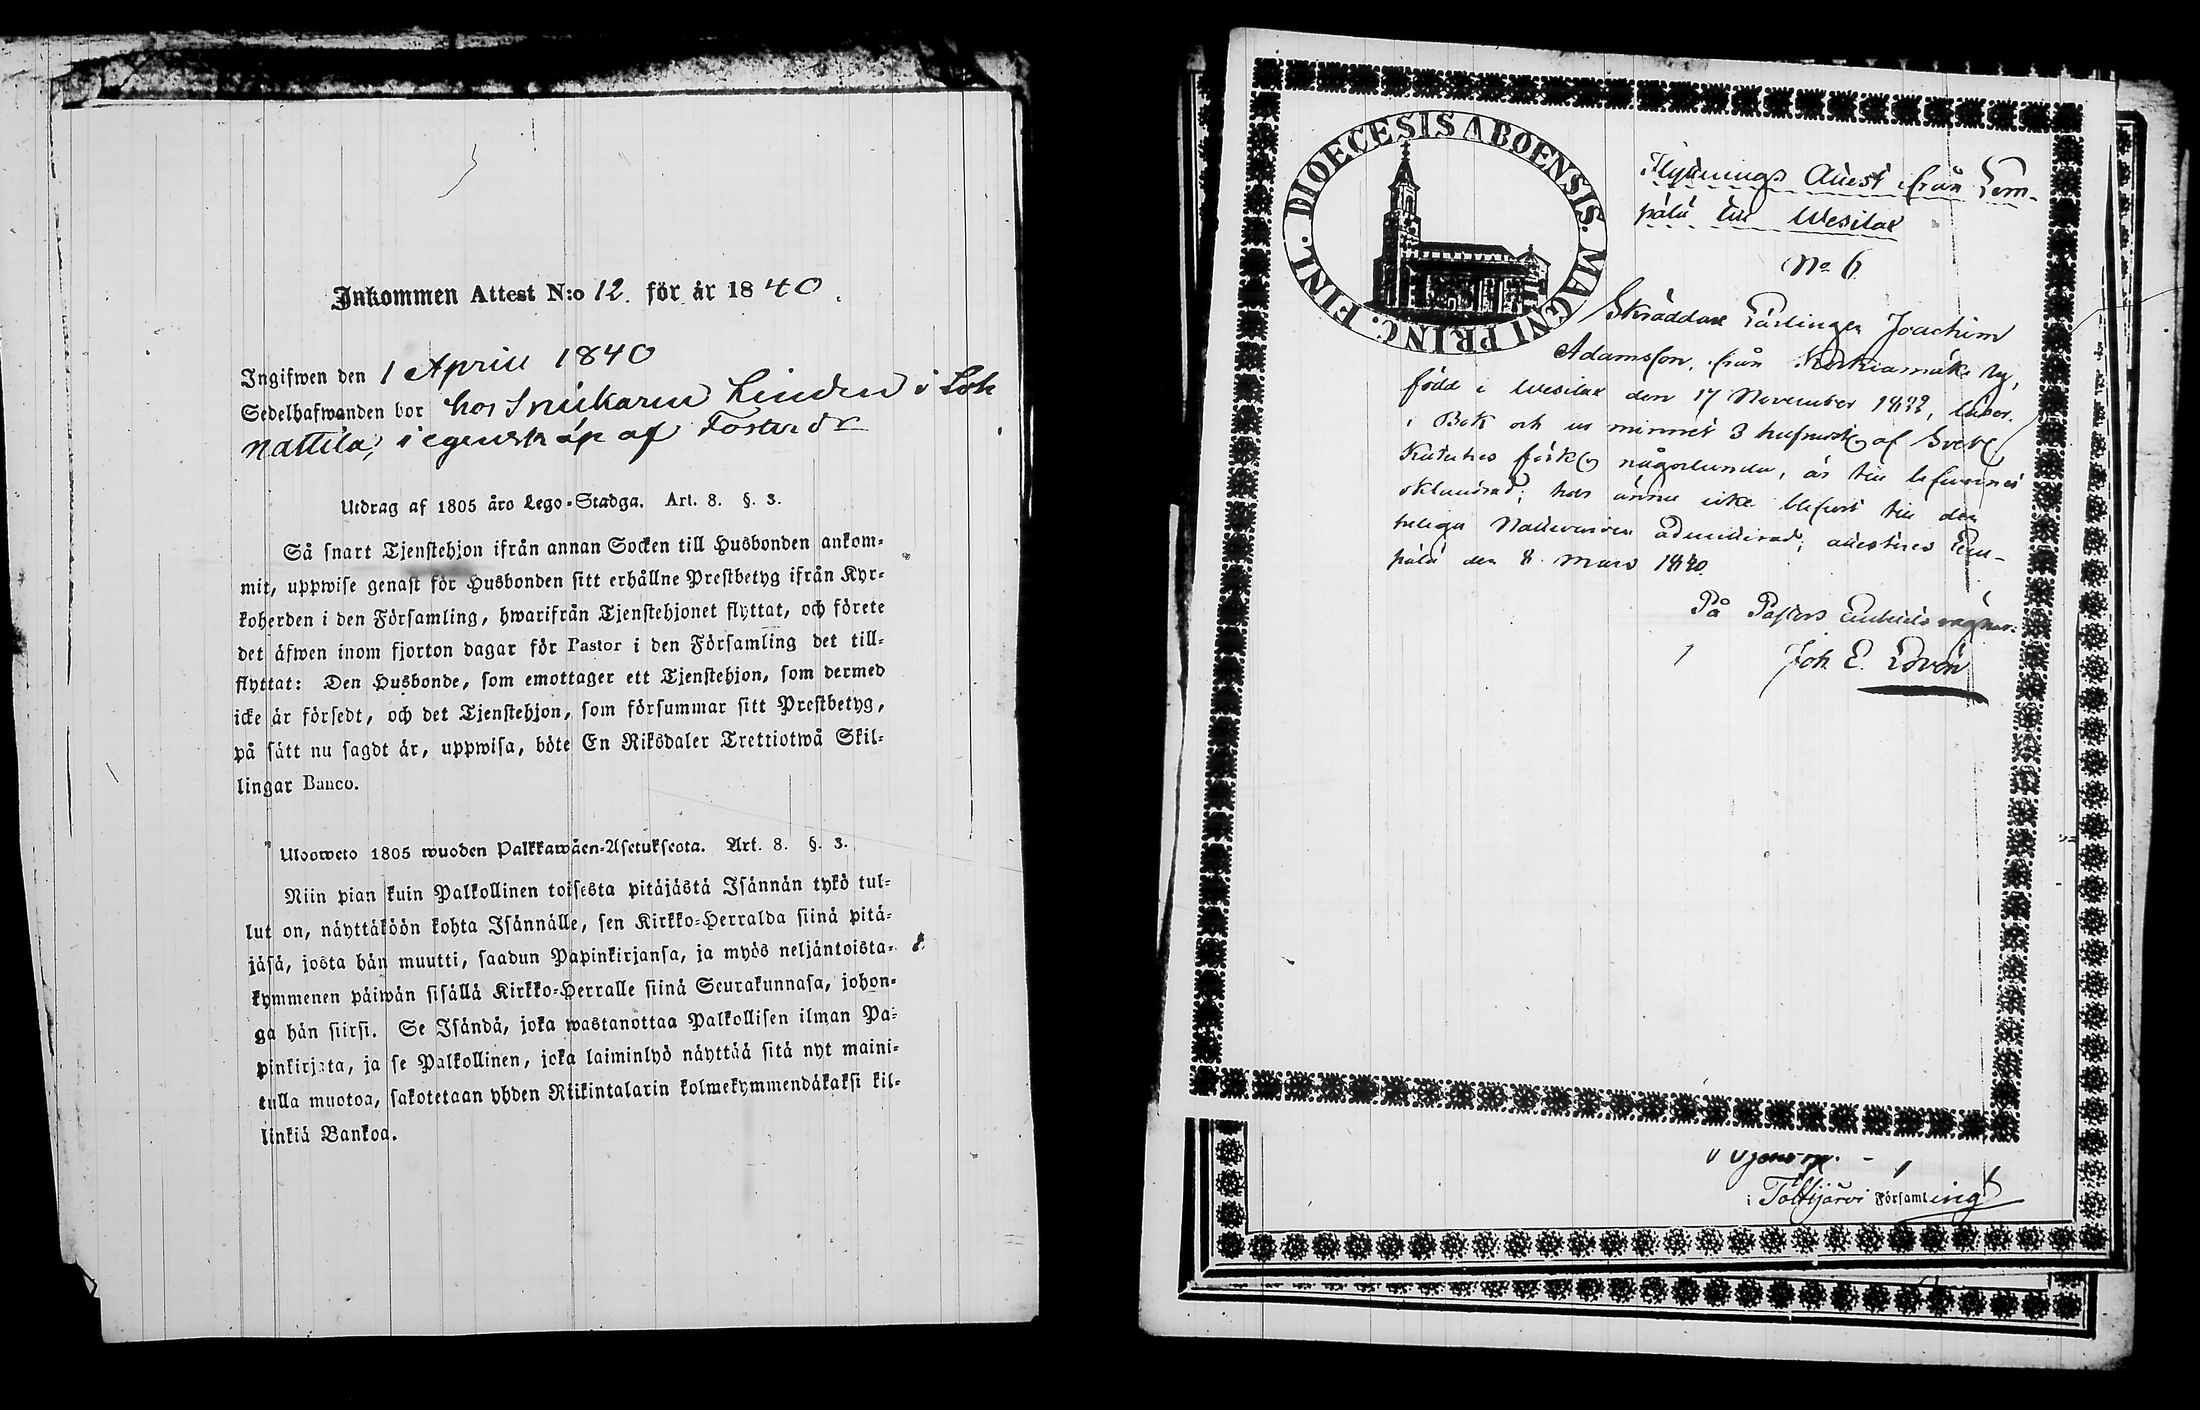 Inkommen Attest N:o 12. för år 1840.
Ingifwen den 1 April 1840
Sedelhafwanden bor hos Snickaren Linden i
Nattila, i egenskap af
Utdrag af 1805 års Lego-Stadga. Art. 8. §. 3.
Så snart Tjenstehjon ifrån annan Socken till Husbonden ankom-
mit, uppwise genast för Husbonden sitt erhållne Prestbetyg ifrån Kyr-
koherden i den Församling, hwarifrån Tjenstehjonet flyttat, och förete
det äfwen inom fjorton dagar för Pastor i den Församling det till-
flyttat: Den Husbonde, som emottager ett Tjenstehjon, som dermed
icke är försedt, och det Tjenstehjon, som försummar sitt Prestbetyg,
på sätt nu sagdt är, uppwisa, böte En Riksdaler Trettiotwå Skil-
lingar Banco.
Ulosweto 1805 wuoden Palkkawäen-Asetuksesta. Art. 8. §. 3.
Niin pian kuin Palkollinen toisesta pitäjästä Isännän tykö tul-
lut on, näyttäköön kohta Isännälle, sen Kirkko-Herralda siinä pitä-
jäsä, josta hän muutti, saadun Papinkirjansa, ja myös neljäntoista-
kymmenen päiwän sisällä Kirkko-Herralle siinä Seurakunnasa, johon-
ga hän siirsi. Se Isändä, joka wastanottaa Palkollisen ilman Pa-
pinkirjata, ja se Palkollinen, joka laiminlyö näyttää sitä nyt maini-
tulla muotoa, sakotetaan yhden Riikintalarin kolmekymmendäkaksi kil-
linkiä Bankoa.
DIOECESIS ABOENSIS. MAGNI PRINC. FINL.
Flyttnings Attest från Lem-
pälä till Wesilax
No 6
Skräddare Lärlingen Joachim
Adamsson, från Korkiamäki by,
född i Wesilax den 17 November, läser
i Bok och ur minnet 3 hufvudst af Svebel.
någorlunda, är till lefvernet
oklandrad; har ännu icke blifvit till den
heliga Nattvarden admitterad; attesteras Lem-
pälä den 8 Mars 1840.
På Pastors Embets vägnar:
Joh E.
i Tottijärvi Församling